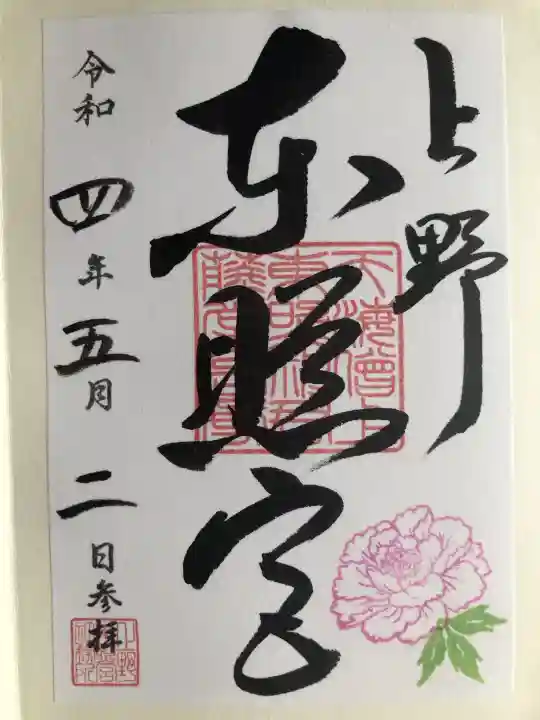 上野
東照宮
令和四年五月二日参拝